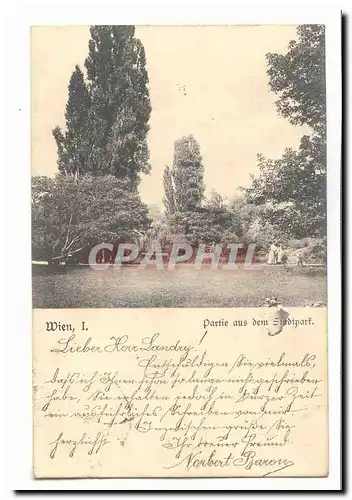 CPARAMA
Wien, I.
Partie aus dem Stadtpark.
Lieber Herr Landry!
Entschuldigen Sie vielmals,
dass ich Ihnen schon so lange nicht geschrieben
habe. Sie erhalten jedoch in kurzer Zeit
ein ausführliches Schreiben von mir
Inzwischen grüßt Sie
herzlichst
Ihr treuer Freund
Norbert Baron